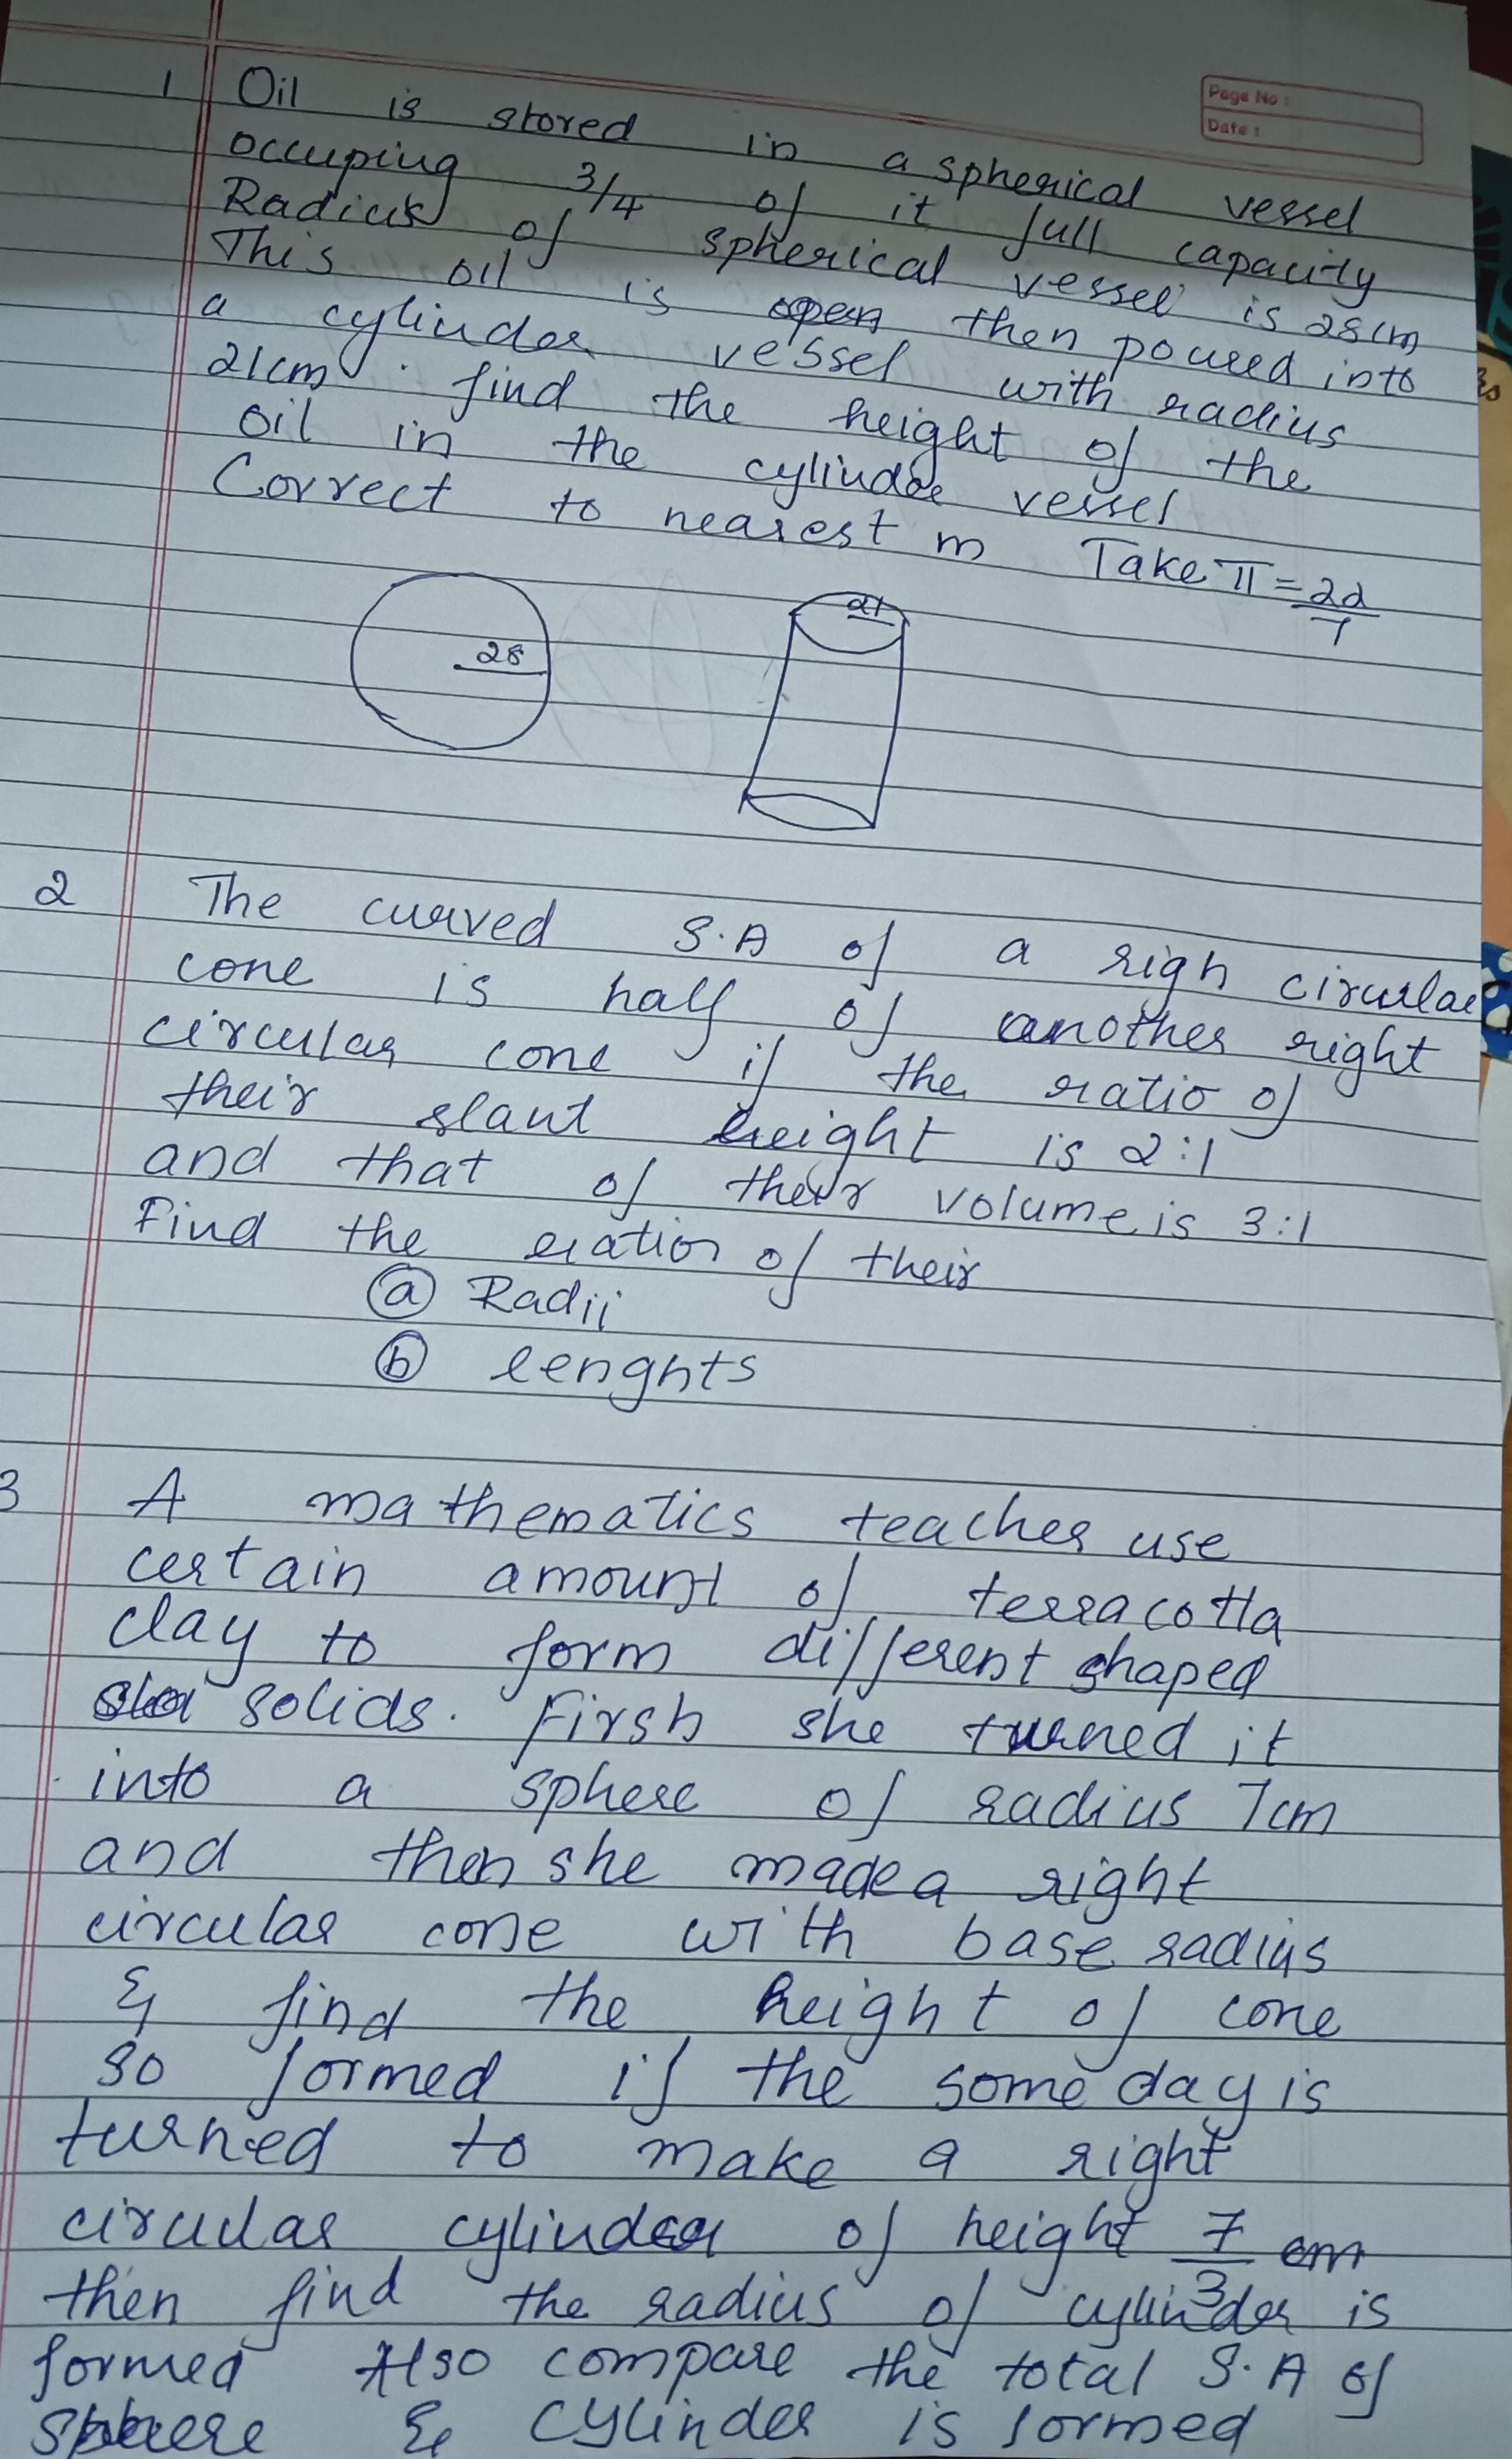 Page No :
Date :
1 Oil is stored in a spherical vessel
occuping 3/4 of it full capacity
Radius of spherical vessel is 28cm
This oil is then poured into
a cylinder vessel with radius
21cm. find the height of the
oil in the cylinder vessel
Correct to nearest m Take π = 22/7
28
21
2 The curved S.A of a righ circular
cone is half of another right
circular cone if the ratio of
their slant height is 2:1
and that of their volume is 3:1
Find the ration of their
(a) Radii
(b) lenghts
3 A mathematics teacher use
certain amount of terracotta
clay to form different shaped
solids. First she turned it
into a sphere of radius 7cm
and then she made a right
circular cone with base radius
& find the height of cone
so formed if the some day is
turned to make a right
circular cylinder of height 7/3 cm
then find the radius of cylinder is
formed Also compare the total S.A of
Sphere & cylinder is formed